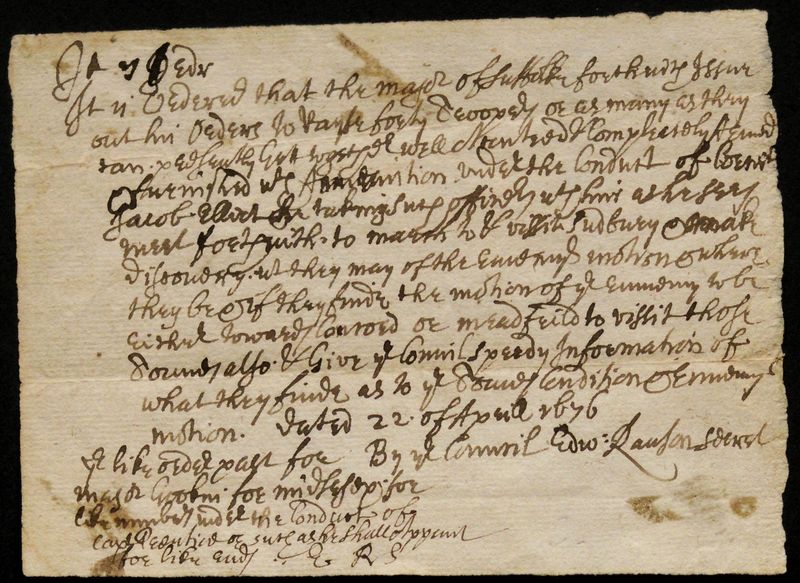 It is Ordr
It is Ordered that the major of Suffolke forthwth Issue
out his Orders to Rayse forty Troopers or as many as they
can presently Gett together well Mounted & Compleatly Armed
& furnished wth Amunition under the Conduct of Cornet
Jacob Elliot he taking such officers wth him as he sees
meet forthwith to march to & vissit Sudbury & make
discovery wt they may of the Enemys motion & where
they be & if they finde the motion of ye Ennemy to be
either towards Concord or meadfeild to vissit those
Townes also & Give ye Councill speedy Information of
what they finde as to ye Townes Condition & Ennemys
motion. Dated 22 of Aprill 1676
By ye Council Edw: Rawson Secret
ye like order past for
major Gookin for midlesex for
like number under the Conduct of
capt Prentice or such as he shall Appoint
for like ends E R S